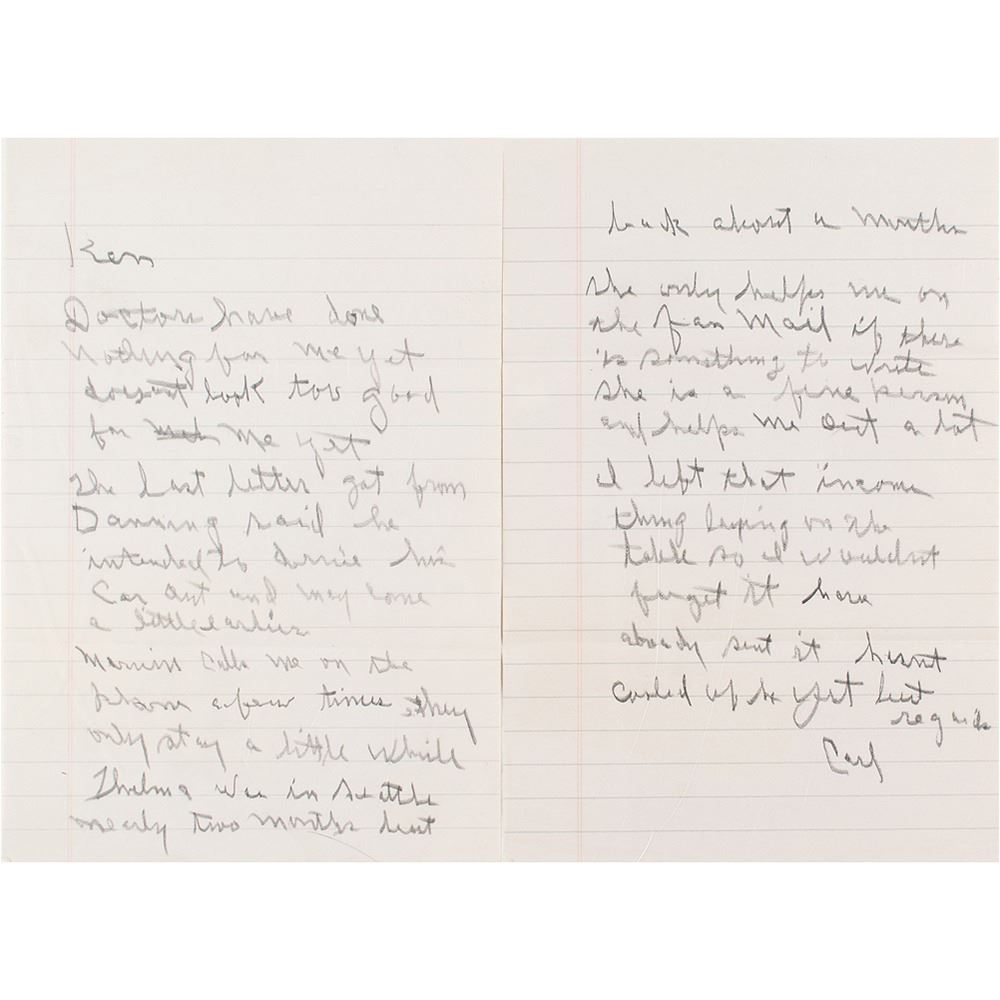 Ken
Doctors have done
Nothing for me yet
doesnt look too good
for me yet
The Last letter got from
Danning said he
intended to drive his
Car out and may come
a little earlier
Marvin Calls me on the
phone a few times they
only stay a little while
Thelma was in Seattle
nearly two months but
back about a month
She only helps me on
the fan Mail if there
is something to write
She is a fine person
and helps me out a lot
I left that income
thing laying on the
table so I wouldnt
forget it have
already sent it hasnt
up yet best
regards
Carl